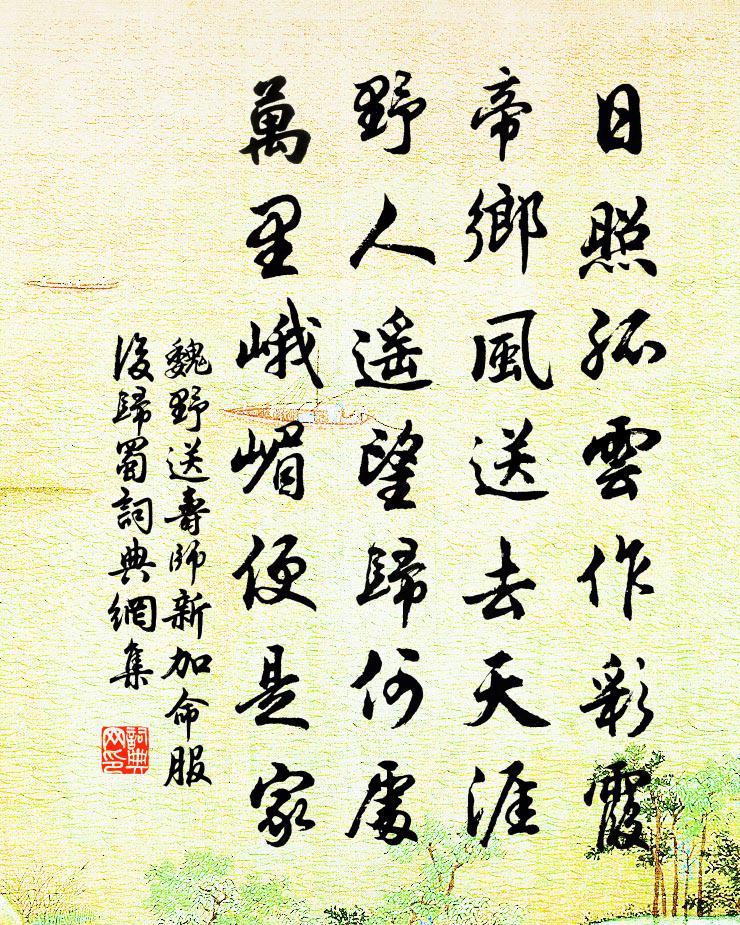 日照孤雲作彩霞
帝鄉風送去天涯
野人遥望歸何處
萬里峨嵋便是家
魏野送壽師新加命服
後歸蜀詞典網集
詞典
网印